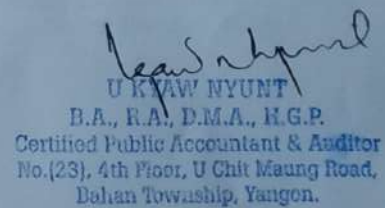 U KYAW NYUNT
B.A., R.A., D.M.A., H.G.P.
Certified Public Accountant & Auditor
No.(23), 4th Floor, U Chit Maung Road,
Bahan Township, Yangon.